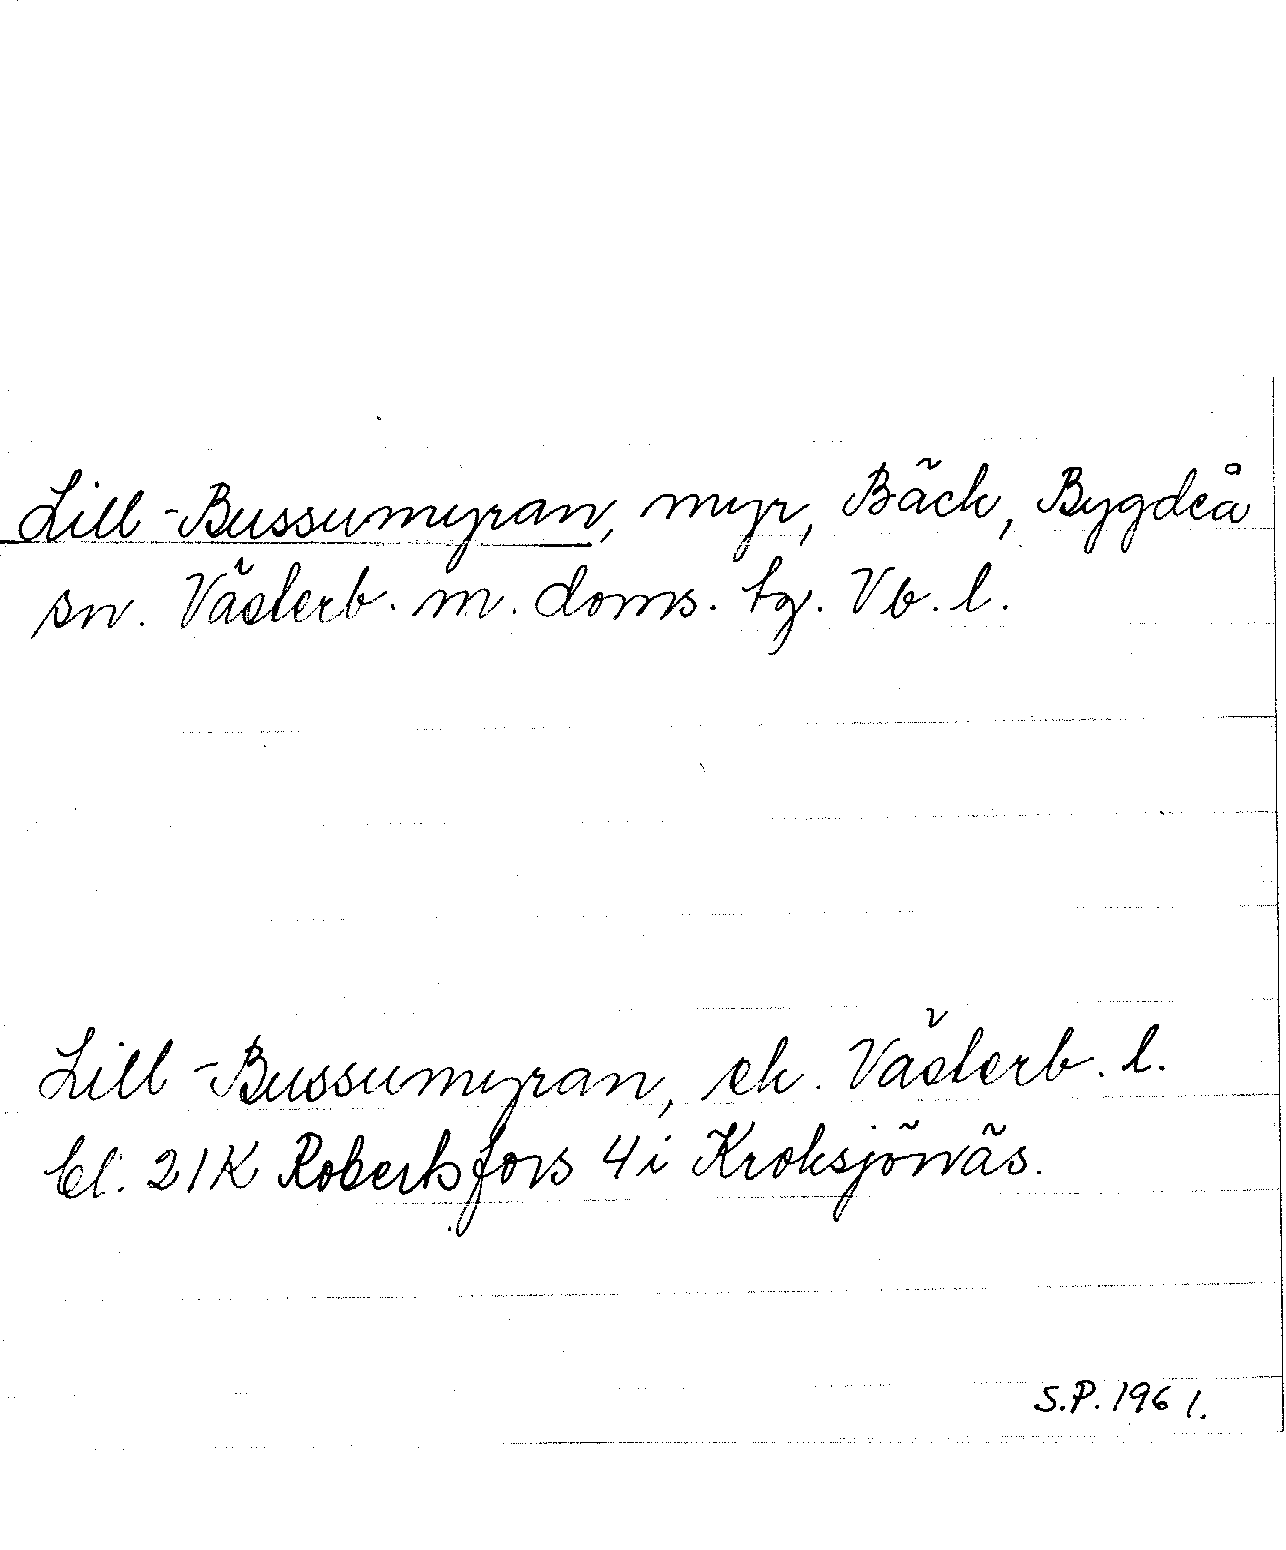 Lill-Bussumyran, myr, Bäck, Bygdeå
sn. Västerb. m. doms. tg. Vb. l.
Lill-Bussumyran, ek. Västerb. l.
bl. 21K Robertsfors 4i Kroksjönäs.
S.P. 1961.